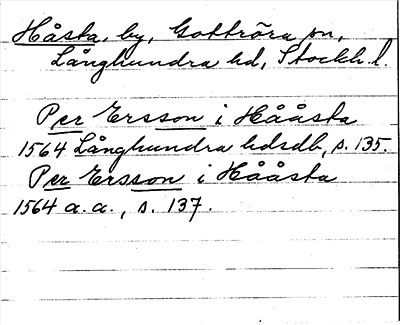 Håsta, by, Gottröra sn,
Långhundra hd, Stockh. l.
Per Ersson i Hååsta
1564 Långhundra hdsdb, s. 135.
Per Ersson i Hååsta
1564 a.a., s. 137.